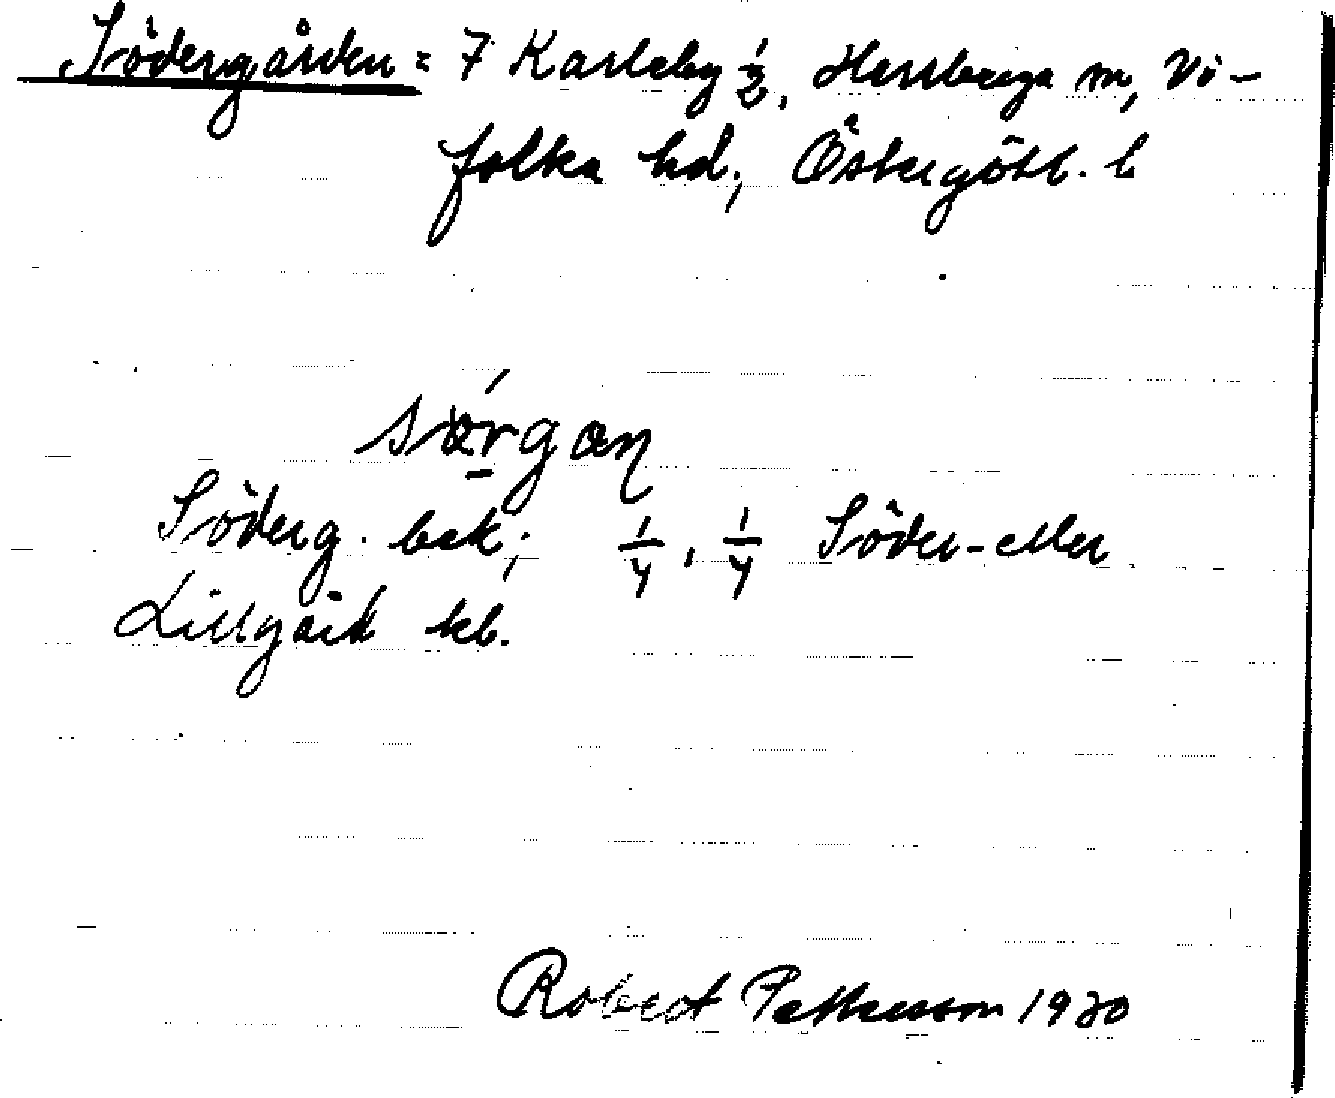 Södergården = 7 Karleby 1/2, Herrberga sn, Vi-
folka hd; Östergötl. l
sörgaɳ
Söderg. bek; 1/4, 1/4 Söder- eller
Lillgård kb.
Robert Pettersson 1930